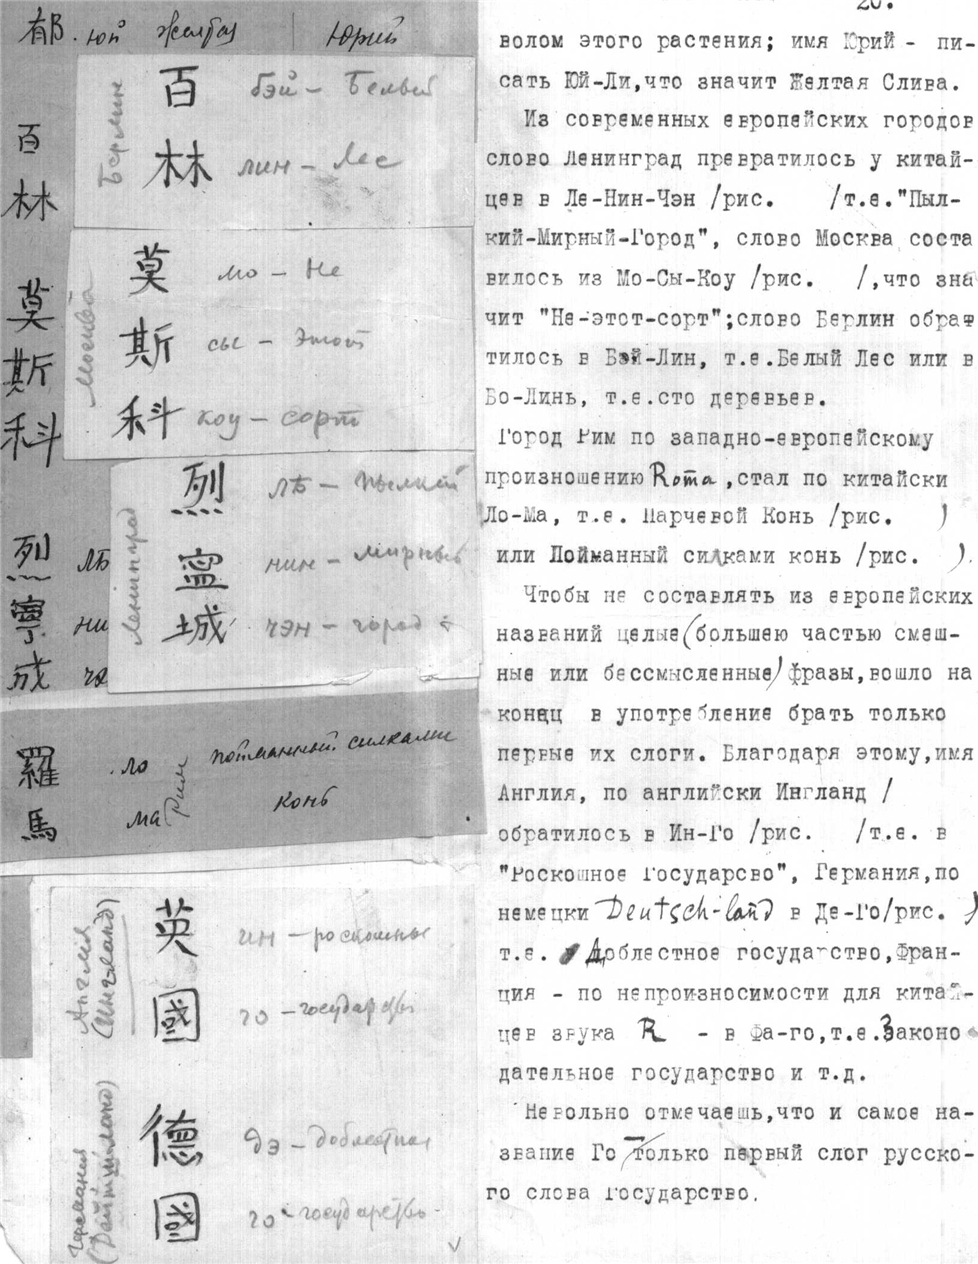 郁. юй желтая Юрий
百
林
Берлин
百 бэй - Белый
林 лин - Лес
莫
斯
科
Москва
莫 мо - Не
斯 сы - этот
科 коу - сорт
烈 лѣ
寧 ни
成
Ленинград
烈 лѣ - пылкий
寧 нин - мирный
城 чэн - город
羅 ло пойманный силками
馬 ма конь
Рим
Англия
(Ингланд)
英 ин - роскошное
國 го - государство
Германия
(Дойтшланд)
德 дэ - доблестная
國 го - государство
20.
волом этого растения; имя Юрий - пи-
сать Юй-Ли,что значит Желтая Слива.
Из современных европейских городов
слово Ленинград превратилось у китай-
цев в Ле-Нин-Чэн /рис. /т.е."Пыл-
кий-Мирный-Город", слово Москва соста
вилось из Мо-Сы-Коу /рис. /,что зна
чит "Не-этот-сорт";слово Берлин обрат
тилось в Бэй-Лин, т.е.Белый Лес или в
Бо-Линь, т.е.сто деревьев.
Город Рим по западно-европейскому
произношению Roma,стал по китайски
Ло-Ма, т.е. Парчевой Конь /рис. )
или Пойманный силками конь /рис. ).
Чтобы не составлять из европейских
названий целые(большею частью смеш-
ные или бессмысленные)фразы,вошло на
конец в употребление брать только
первые их слоги. Благодаря этому,имя
Англия, по английски Ингланд /
обратилось в Ин-Го /рис. /т.е. в
"Роскошное Государсво", Германия,по
немецки Deutsch-land в Де-Го/рис. )
т.е. Доблестное государство,Фран-
ция - по непроизносимости для китай-
цев звука R - в Фа-го,т.е.Законо
дательное государство и т.д.
Невольно отмечаешь,что и самое на-
звание Го - только первый слог русско-
го слова Государство.